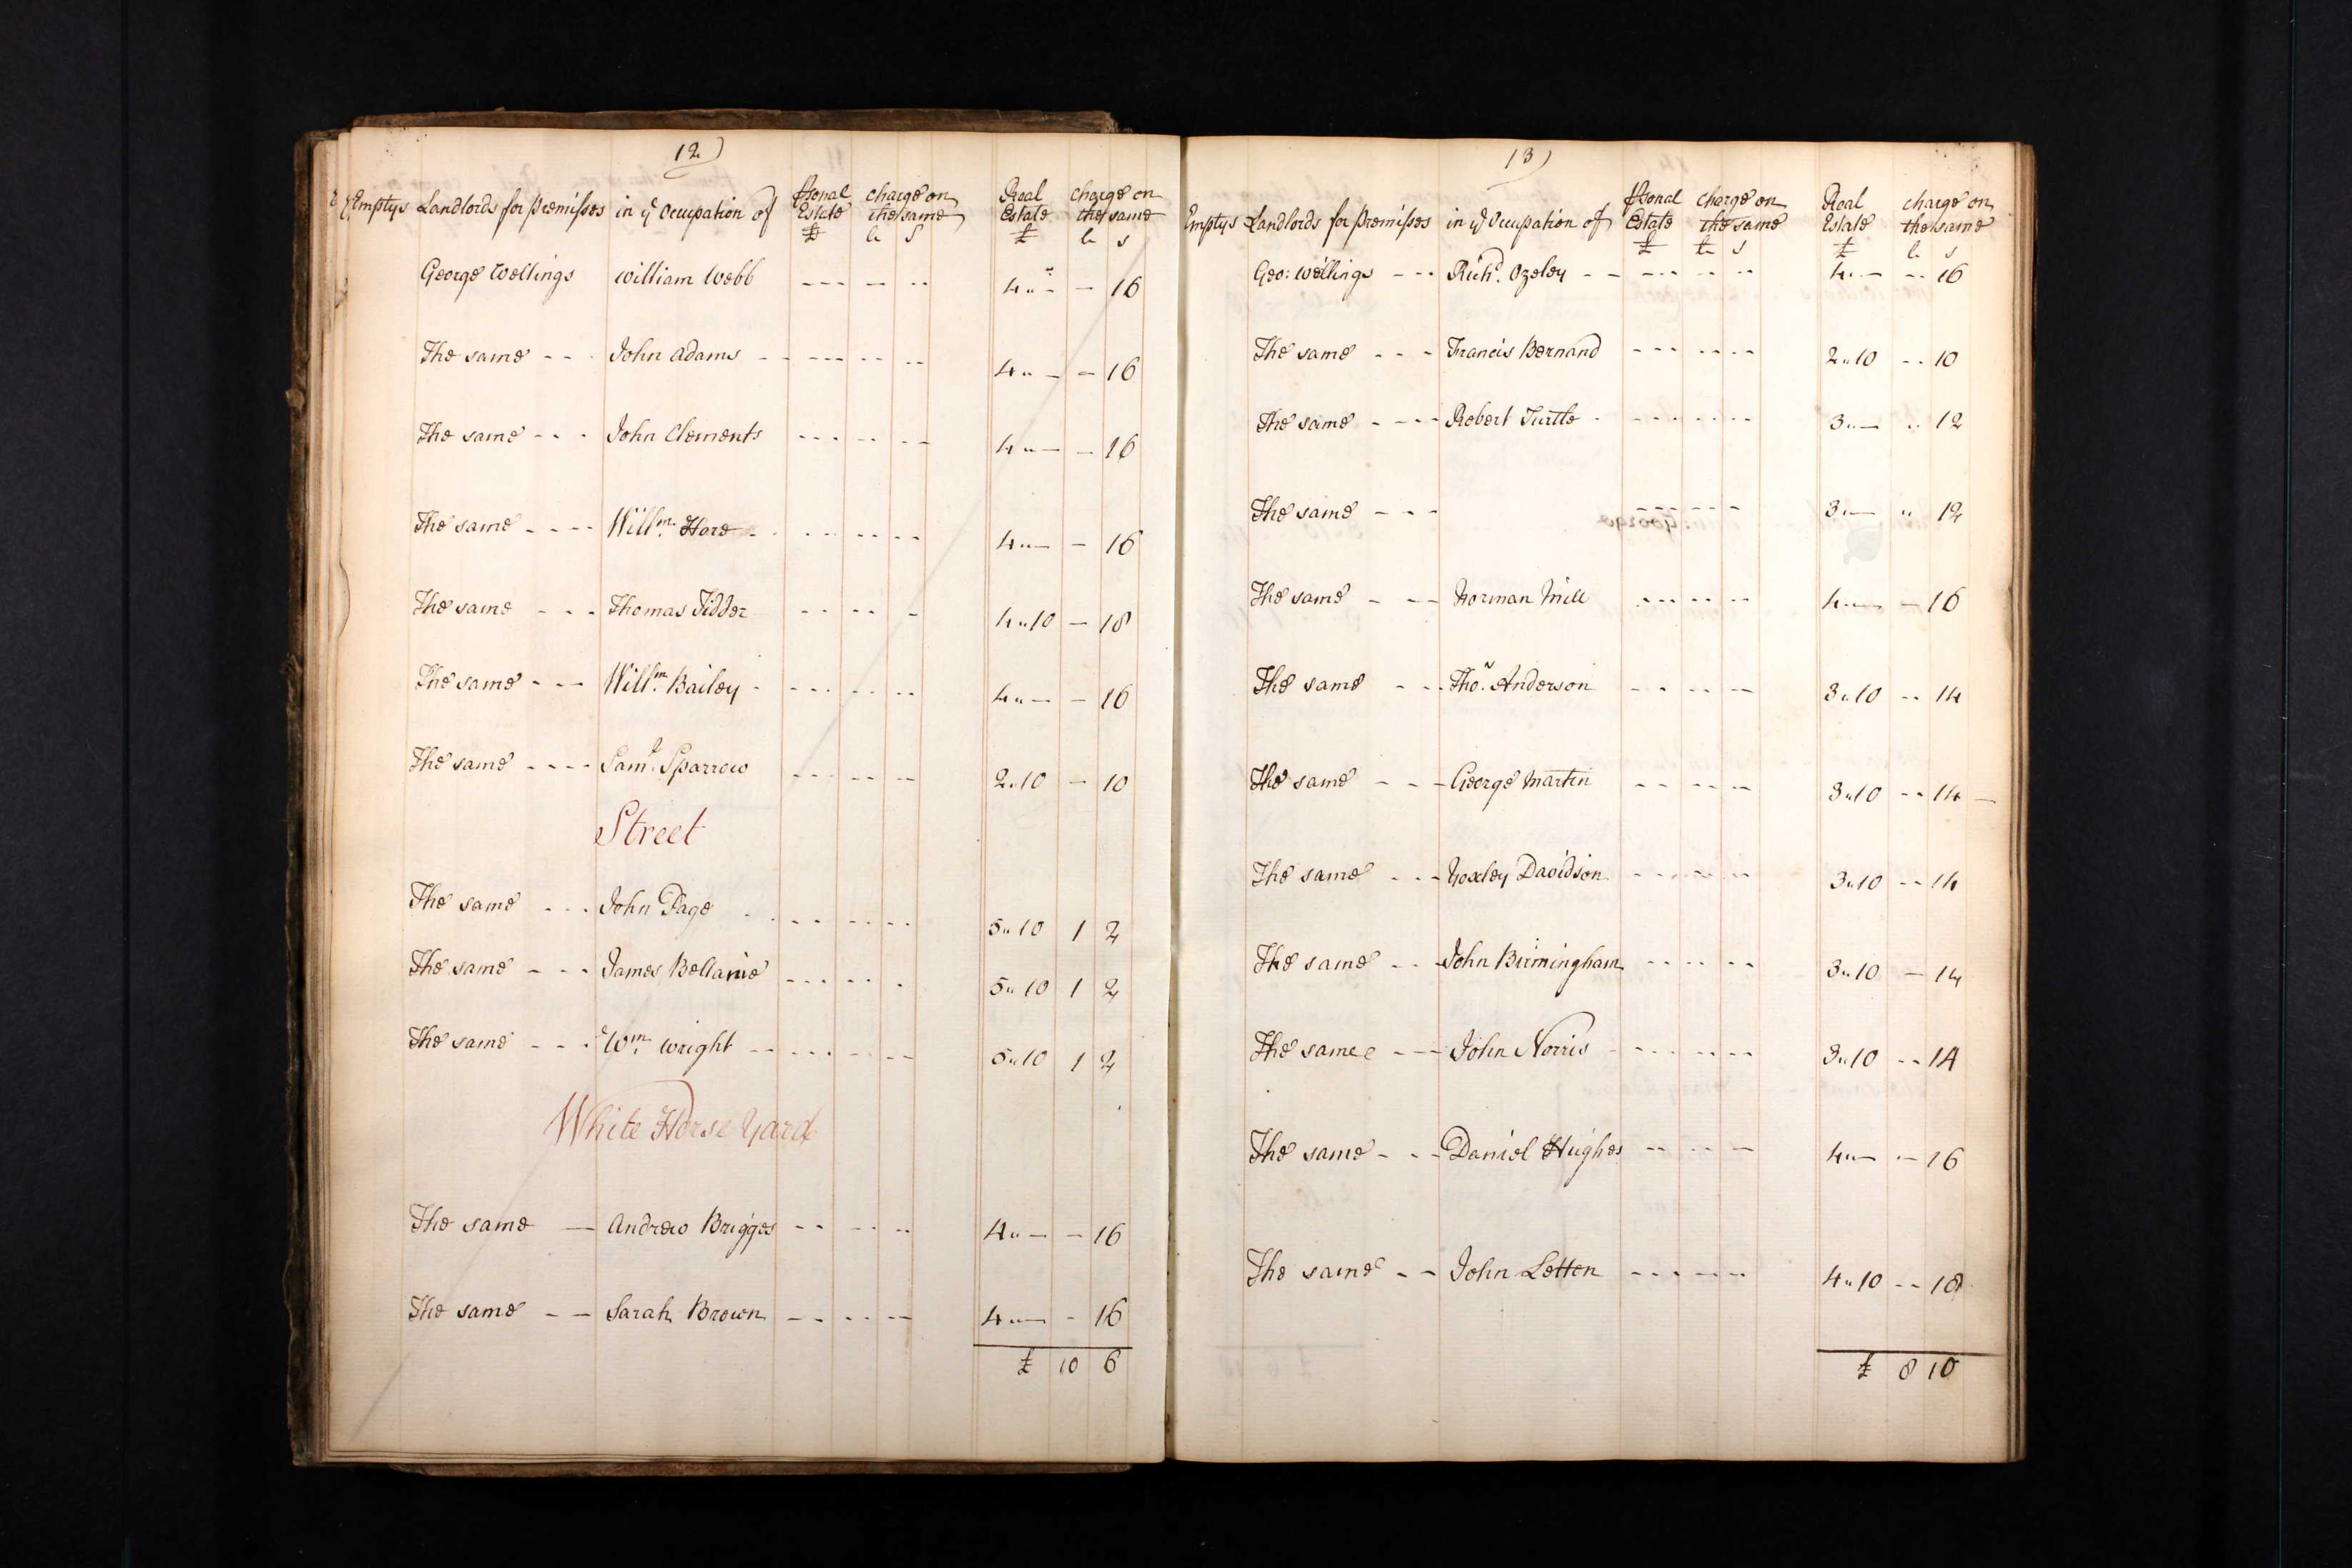 12)
Emptys Landlords for Premisses in ye Occupation of Psonal Estate £ charge on the same li s Real Estate £ charge on the same li s
George Wellings William Webb --- -- -- 4 " - - 16
The same - - - John Adams - - --- -- -- 4 " - - 16
The same - - - John Clements --- -- -- 4 " - - 16
The same - - - - Willm. Hore - --- -- -- 4 " - - 16
The same - - - Thomas Tidder --- -- - 4 " 10 - 18
The same - - - Willm. Bailey - --- -- -- 4 " - - 16
The same - - - - Saml. Sparrow --- -- -- 2 " 10 - 10
Street
The same - - - John Page --- -- -- 5 " 10 1 2
The same - - - James Bellamie --- -- - 5 " 10 1 2
The same - - - Wm. Wright -- --- -- -- 5 " 10 1 2
White Horse Yard
The same — Andrew Brigges -- -- -- 4 " - - 16
The same - - Sarah Brown -- -- -- 4 " - - 16
£ 10 6
13)
Emptys Landlords for Premisses in ye Occupation of Psonal Estate £ charge on the same li s Real Estate £ charge on the same li s
Geo: Wellings - - - Richd. Ozeley - - --- -- -- 4 " - -- 16
The same - - - Francis Bernand --- -- -- 2 " 10 -- 10
The same - - - - Robert Turtle - --- -- -- 3 " - -- 12
The same - - - --- -- -- 3 " - " 12
The same - - - Norman Mill --- -- -- 4 " - - 16
The same - - - Thos. Anderson -- -- -- 3 " 10 -- 14
The same - - - George Martin -- -- -- 3 " 10 -- 14 —
The same - - - Yoxley Davidson --- -- -- 3 " 10 -- 14
The same - - - John Birmingham -- -- -- 3 " 10 - 14
The samee - - - John Norris - --- -- -- 3 " 10 -- 14
The same - - - Daniel Hughes -- -- -- 4 " - - 16
The same - - John Letten --- -- -- 4 " 10 -- 18
£ 8 10